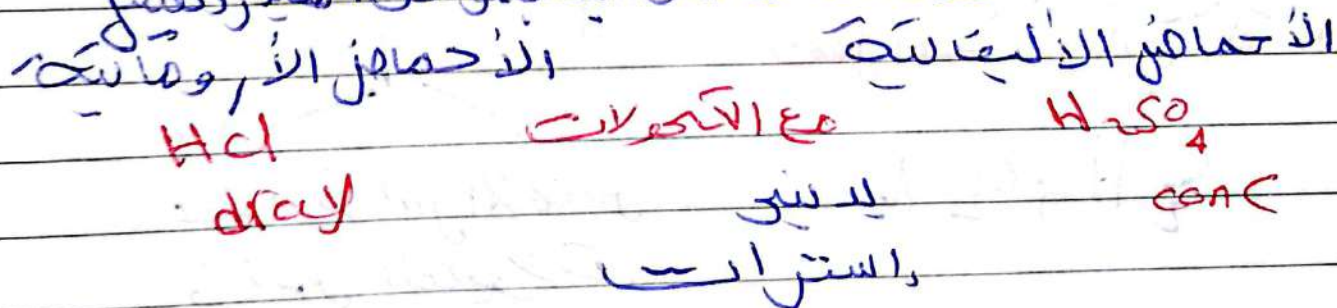 الأحماض الأليفاتية الأحماض الأروماتية
H2SO4 مع الكحولات Hcl
conc dray
استرات